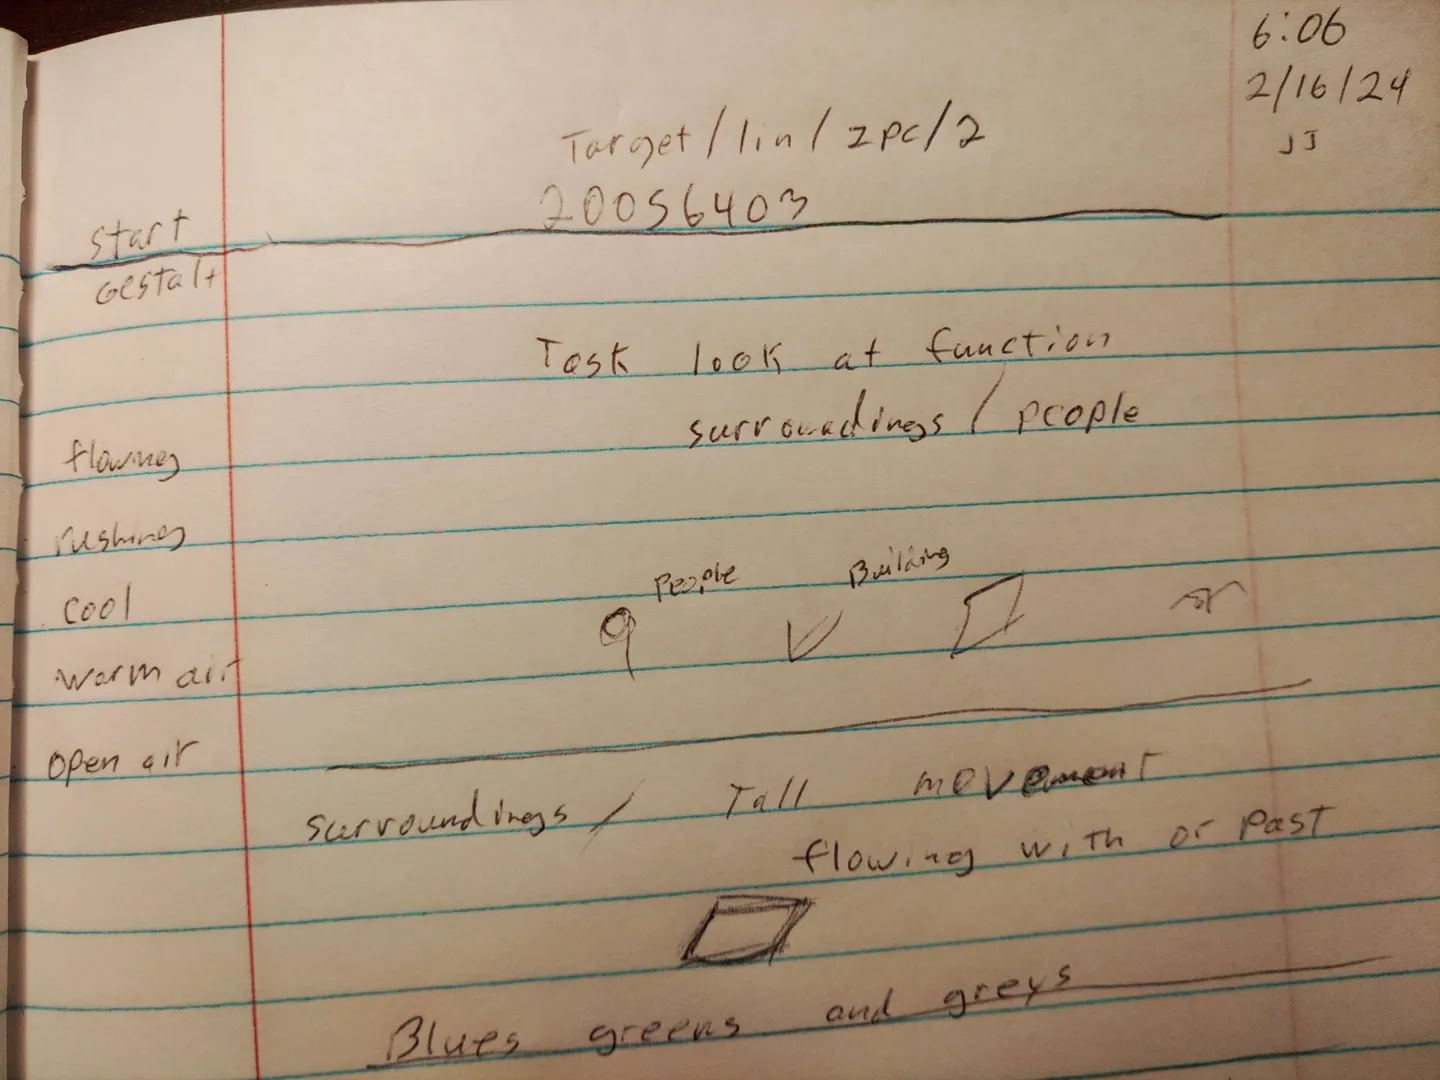 6:06
2/16/24
JJ
Target/lin/zpc/2
20056403
start
Gestalt
Task look at function
surroundings / people
flowing
rushing
People Building
Cool
warm air
open air
surroundings / Tall movement
flowing with or past
Blues greens and greys